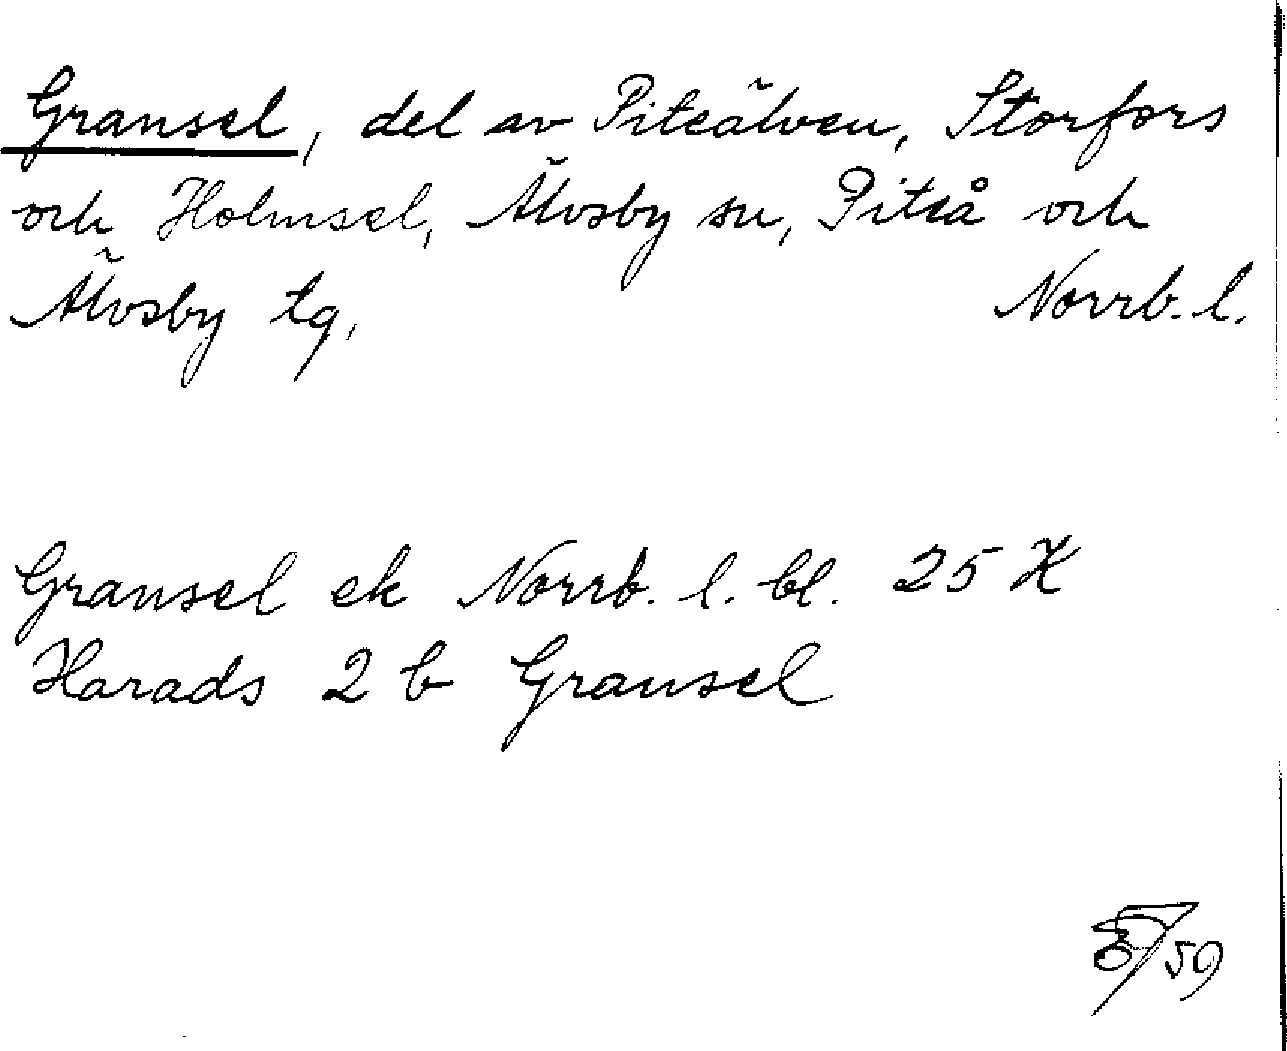 Gransel, del av Piteälven, Storfors
och Holmsel, Älvsby sn, Piteå och
Älvsby tg, Norrb. l.
Gransel ek Norrb. l. bl. 25 K
Harads 2 b Gransel
/59